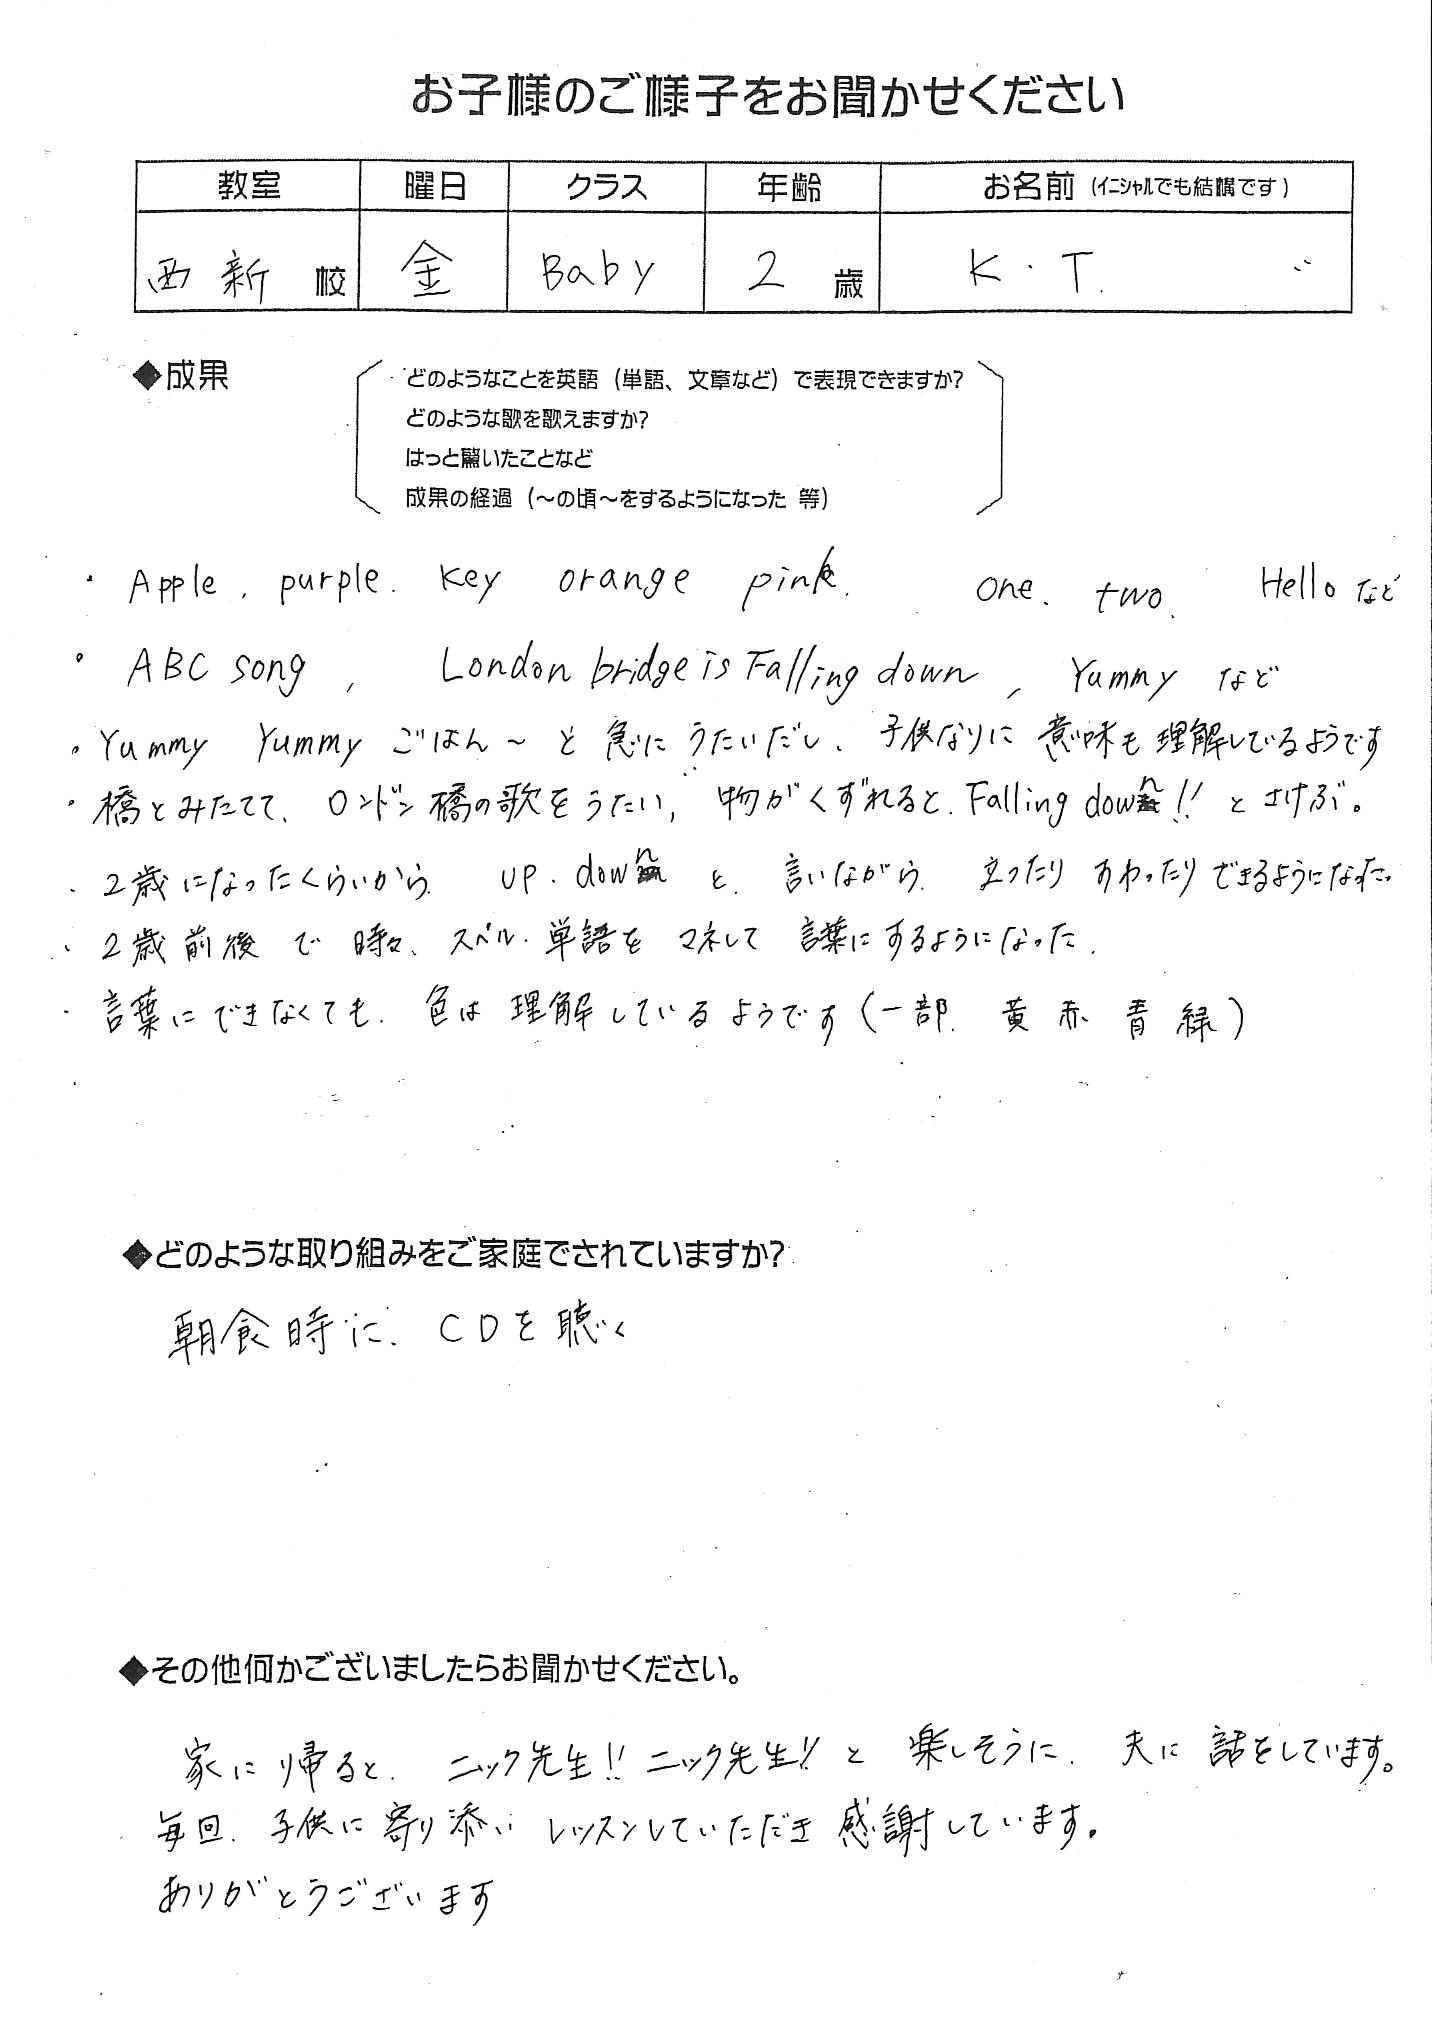 お子様のご様子をお聞かせください
教室 曜日 クラス 年齢 お名前 (イニシャルでも結構です)
西新 校 金 Baby 2 歳 K・T.
◆成果
どのようなことを英語(単語、文章など)で表現できますか?
どのような歌を歌えますか?
はっと驚いたことなど
成果の経過(〜の頃〜をするようになった 等)
・Apple, purple. key orange pink. one. two. Hello など
・ABC song, London bridge is Falling down, Yummy など
・Yummy Yummy ごはん〜と急にうたいだし、子供なりに意味も理解しているようです
・橋とみたてて、ロンドン橋の歌をうたい, 物がくずれると、Falling down!! とさけぶ。
・2歳になったくらいから up・down と、言いながら、立ったりすわったりできるようになった。
・2歳前後で時々、スペル・単語をマネして言葉にするようになった.
・言葉にできなくても、色は理解しているようです(一部. 黄 赤 青 緑)
◆どのような取り組みをご家庭でされていますか?
朝食時に、CDを聴く
◆その他何かございましたらお聞かせください。
家に帰ると、ニック先生!! ニック先生!! と楽しそうに、夫に話をしています。
毎回、子供に寄り添いレッスンしていただき感謝しています。
ありがとうございます